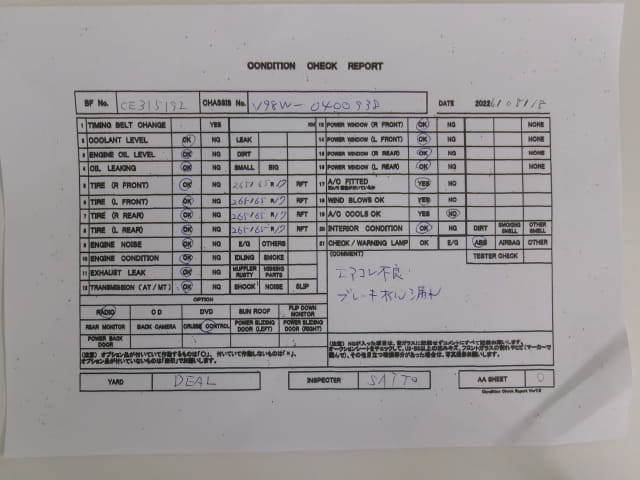 CONDITION CHECK REPORT
BF No. CE315192 CHASSIS No. V98W-0400938 DATE 2022
1 TIMING BELT CHANGE YES KM
2 COOLANT LEVEL OK NG LEAK
3 ENGINE OIL LEVEL OK NG DIRT
4 OIL LEAKING OK NG SMALL BIG
5 TIRE (R FRONT) OK NG 265/65R17 RFT
6 TIRE (L FRONT) OK NG 265/65R17 RFT
7 TIRE (R REAR) OK NG 265/65R17 RFT
8 TIRE (L REAR) OK NG 265/65R17 RFT
9 ENGINE NOISE OK NG E/G OTHERS
10 ENGINE CONDITION OK NG IDLING SMOKE
11 EXHAUST LEAK OK NG MUFFLER RUSTY MISSING PARTS
12 TRANSMISSION (AT/MT) OK NG SHOCK NOISE SLIP
13 POWER WINDOW (R FRONT) OK NG NONE
14 POWER WINDOW (L FRONT) OK NG NONE
15 POWER WINDOW (R REAR) OK NG NONE
16 POWER WINDOW (L REAR) OK NG NONE
17 A/C FITTED YES NO
18 WIND BLOWS OK YES NO
19 A/C COOLS OK YES NO
20 INTERIOR CONDITION OK NG DIRT SMOKING SMELL OTHER SMELL
21 CHECK/WARNING LAMP OK E/G ABS AIRBAG OTHER
(COMMENT) TESTER CHECK
エアコン不良
ブレーキオイル漏れ
OPTION
RADIO CD DVD SUN ROOF FLIP DOWN MONITOR
REAR MONITOR BACK CAMERA CRUISE CONTROL POWER SLIDING DOOR (LEFT) POWER SLIDING DOOR (RIGHT)
POWER BACK DOOR
(注意) オプション品が付いていて作動するものは「○」、付いていて作動しないものは「×」、
オプション品が付いていないものは「斜線」でお願いします。
YARD DEAL INSPECTER SAITO AA SHEET 0
Condition Check Report Ver7.0